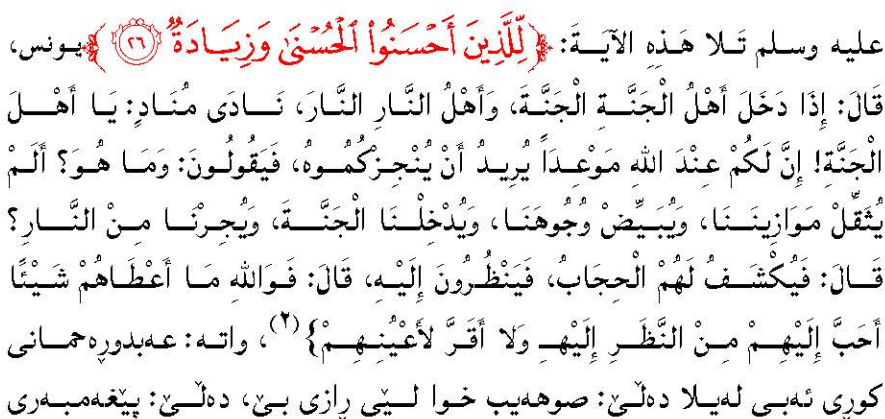 عليه وسلم تَـلا هَـذِهِ الآيَـةَ: ﴿لِّلَّذِينَ أَحْسَنُوا۟ ٱلْحُسْنَىٰ وَزِيَادَةٌۭ ۝٢٦﴾ يونس،
قَالَ: إِذَا دَخَلَ أَهْلُ الْجَنَّـةِ الْجَنَّـةَ، وَأَهْلُ النَّارِ النَّارَ، نَـادَى مُنَـادٍ: يَـا أَهْـلَ
الْجَنَّةِ! إِنَّ لَكُمْ عِنْدَ اللهِ مَوْعِـدَاً يُرِيـدُ أَنْ يُنْجِـزَكُمُـوهُ، فَيَقُولُـونَ: وَمَـا هُـوَ؟ أَلَـمْ
يُثَقِّلْ مَوَازِينَـنَـا، وَيُبَـيِّضْ وُجُوهَنَـا، وَيُدْخِلْـنَـا الْجَنَّـةَ، وَيُجِرْنَـا مِـنْ النَّـارِ؟
قَـالَ: فَيُكْشَـفُ لَهُمْ الْحِجَابُ، فَيَنْظُـرُونَ إِلَيْـهِ، قَالَ: فَـوَاللهِ مَـا أَعْطَـاهُمْ شَـيْئًا
أَحَبَّ إِلَيْهِـمْ مِـنْ النَّظَـرِ إِلَيْهِـ وَلَا أَقَرَّ لأَعْيُنِـهِـمْ}(٢)، واتـه: عـەبدورەحمـانی
کوڕی ئەبی لەیلا دەڵـێ: صوهەیب خوا لـێی ڕازی بـێ، دەڵـێ: پێغەمبـەری